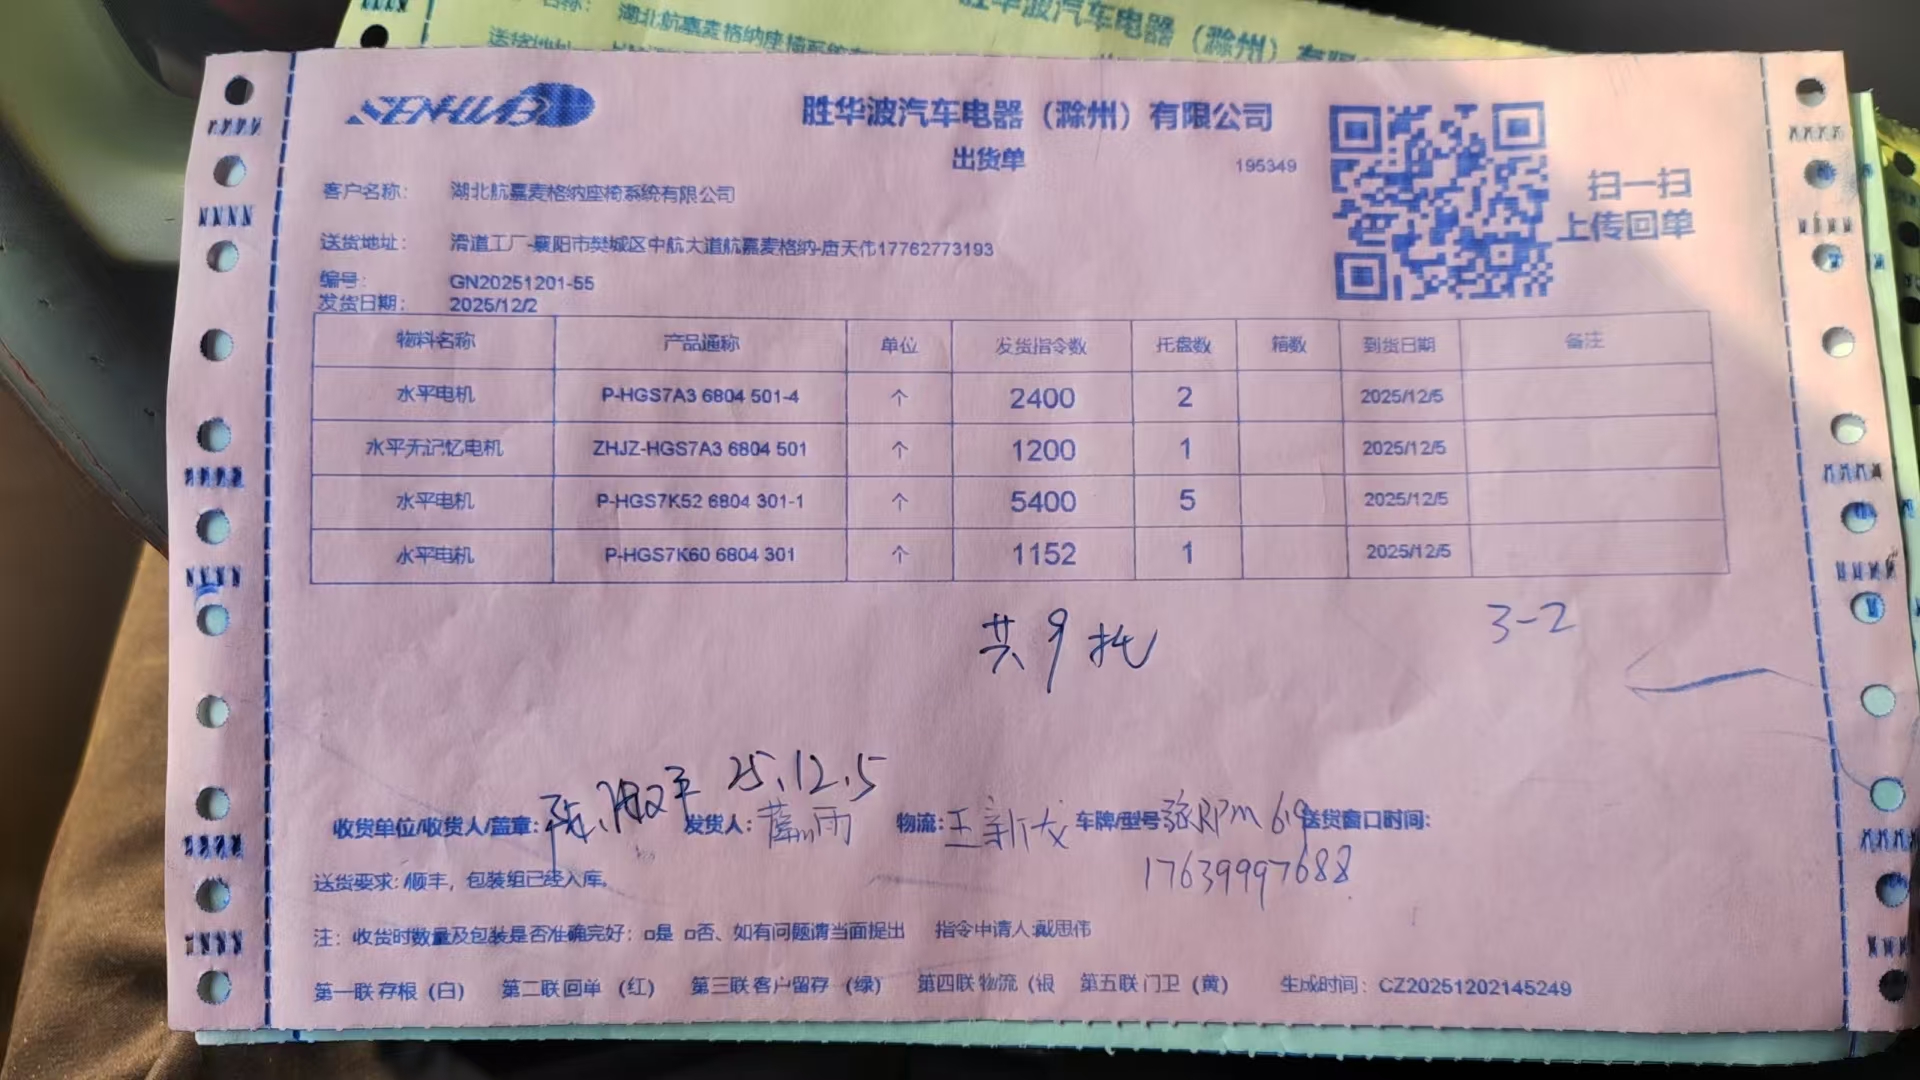 湖北航嘉麦格纳座椅系统有
胜华波汽车电器（滁州）有限
送货地址
SENHWBO
胜华波汽车电器（滁州）有限公司
出货单
195349
扫一扫
上传回单
客户名称： 湖北航嘉麦格纳座椅系统有限公司
送货地址： 滑道工厂-襄阳市樊城区中航大道航嘉麦格纳-唐天伟17762773193
编号： GN20251201-55
发货日期： 2025/12/2
物料名称 产品通称 单位 发货指令数 托盘数 箱数 到货日期 备注
水平电机 P-HGS7A3 6804 501-4 个 2400 2 2025/12/5
水平无记忆电机 ZHJZ-HGS7A3 6804 501 个 1200 1 2025/12/5
水平电机 P-HGS7K52 6804 301-1 个 5400 5 2025/12/5
水平电机 P-HGS7K60 6804 301 个 1152 1 2025/12/5
共9托
3-2
25.12.5
收货单位/收货人/盖章： 发货人： 雨 物流：王新龙 车牌/型号 送货窗口时间：
17639997688
送货要求：顺丰，包装组已经入库。
注：收货时数量及包装是否准确完好；□是 □否、如有问题请当面提出 指令申请人:戴思伟
第一联存根（白） 第二联回单（红） 第三联客户留存（绿） 第四联物流（银 第五联门卫（黄） 生成时间：CZ20251202145249